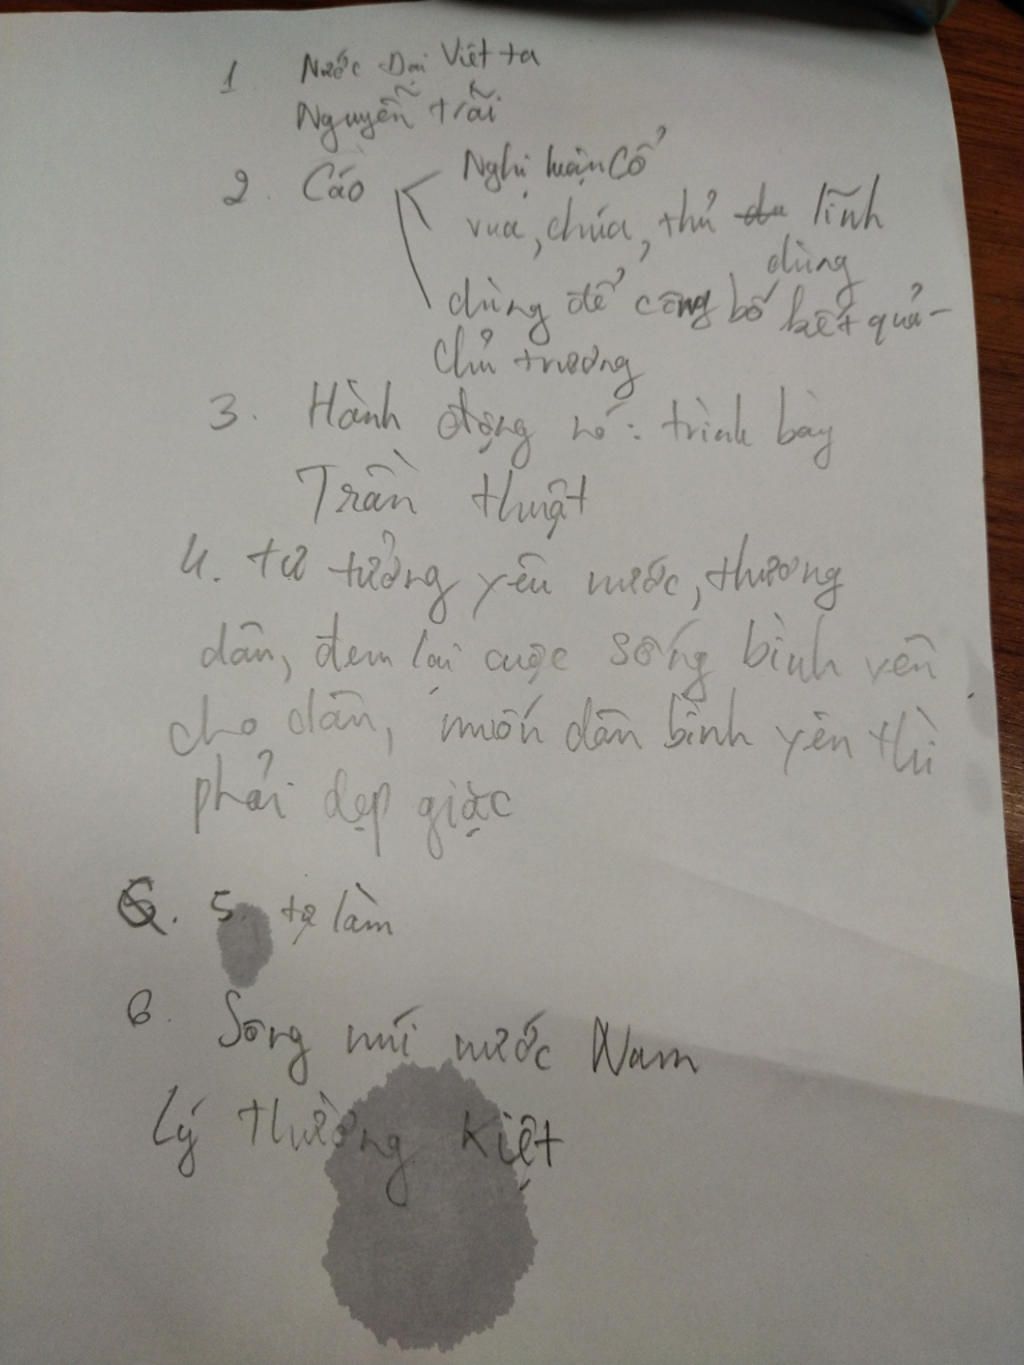 1 Nước Đại Việt ta
Nguyễn Trãi
2. Cáo Nghị luận cổ
vua, chúa, thủ lĩnh
dùng
dùng để công bố kết quả -
chủ trương
3. Hành động nó: trình bày
Trần thuật
4. tư tưởng yêu nước, thương
dân, đem lại cuộc sống bình yên
cho dân, muốn dân bình yên thì
phải dẹp giặc
5. tự làm
6. Sông núi nước Nam
Lý thường Kiệt